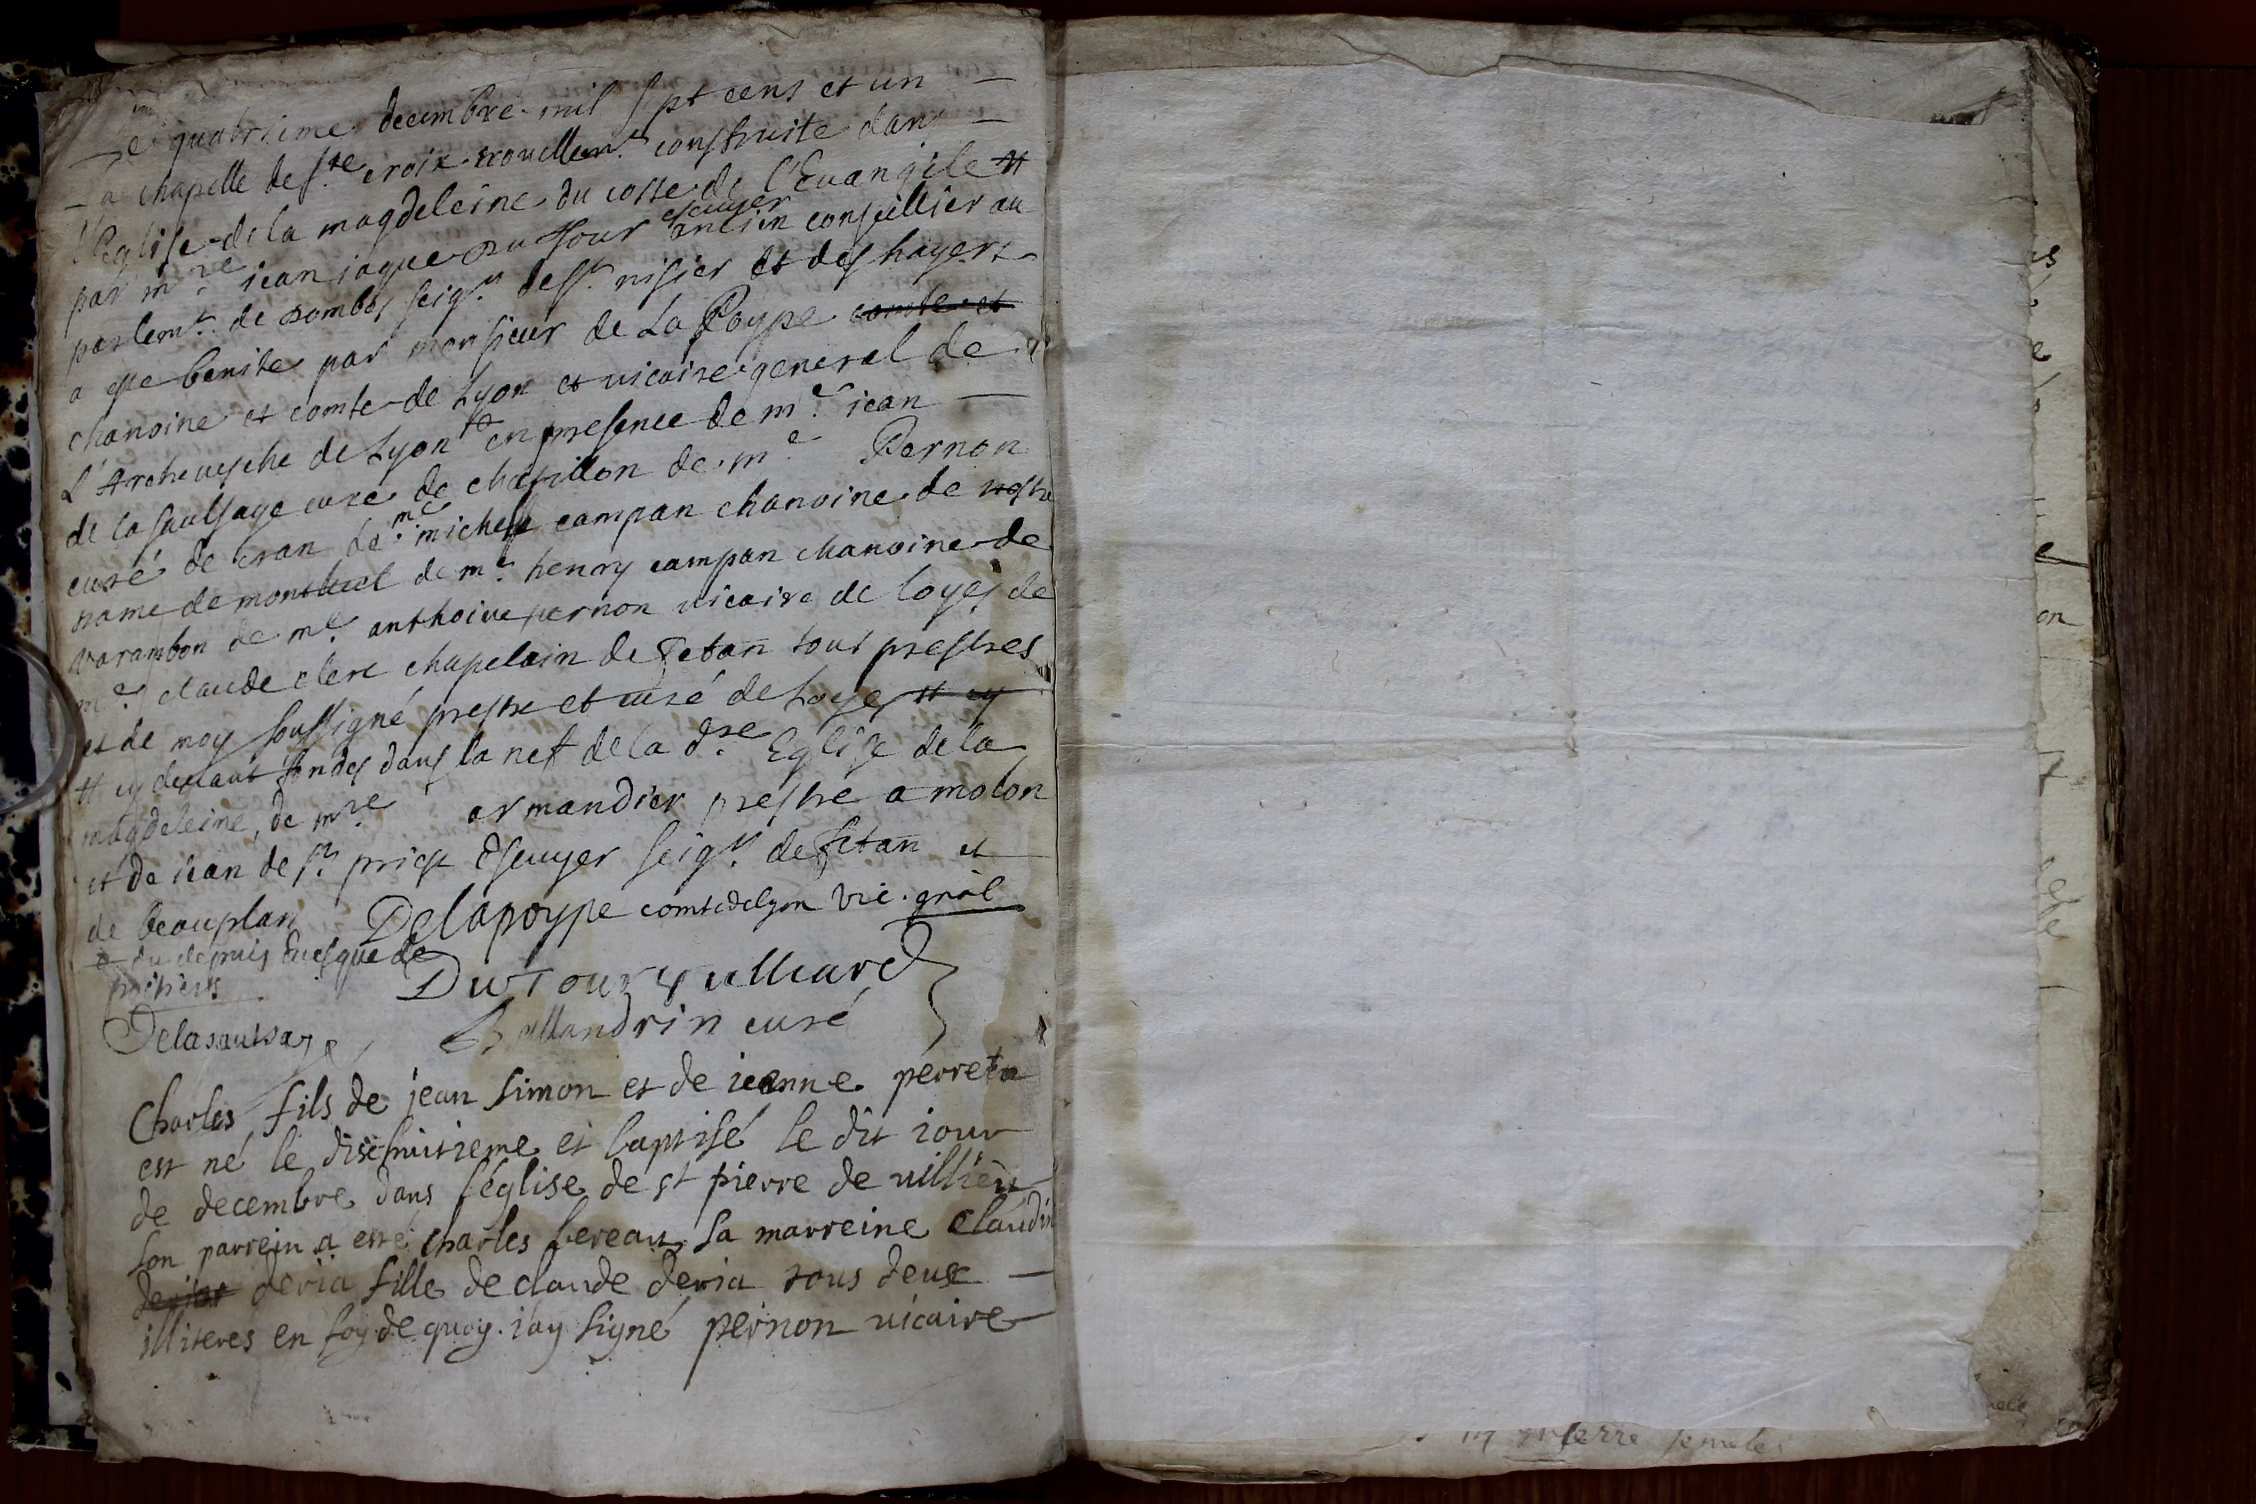 Le quatrieme decembre mil sept cens et un —
La chapelle de Ste croix nouellemt construite dans —
l'Eglise de la magdeleine du coste de l'Euangile #
par mre iean iaque Du Tour escuyer ancien conseillier au
parlemt de Dombes seigr de st nisier et des hayers
a este benite par monsieur de La Poype comte et
chanoine et comte de Lyon et vicaire general de
L'Archeuesche de Lyon en presence de mre iean —
de la saulsaye curé de chatillon de me Pernon
curé de cran de me michel campan chanoine de nostre
Dame de montluel de me henry campan chanoine de
varambon de me anthoine pernon vicaire de loyes de
me claude clerc chapelain de Fetan tous prestres
et de moy soussigné prestre et curé de Loyes # cy
# cy deuant fondes dans la nef de la dte Eglise de la
magdeleine, de mre armandier prestre a molon
et de iean de st priest Escuyer seigr de Fetan et
de beauplan Delapoype comte de lyon vic. gnal
+ du depuis Euesque de
poitiers
DuTour Vulliard
Delasausaye
Ballandrin curé
Charles fils de jean Simon et de ieanne perret
est né le dischuitieme et baptisé le dit iour
de decembre dans l'église de st pierre de villieu
son parrein a esté charles bereau sa marreine Claudin
derias deria fille de claude deria tous deux —
illiteres en foy de quoy iay signé pernon vicaire